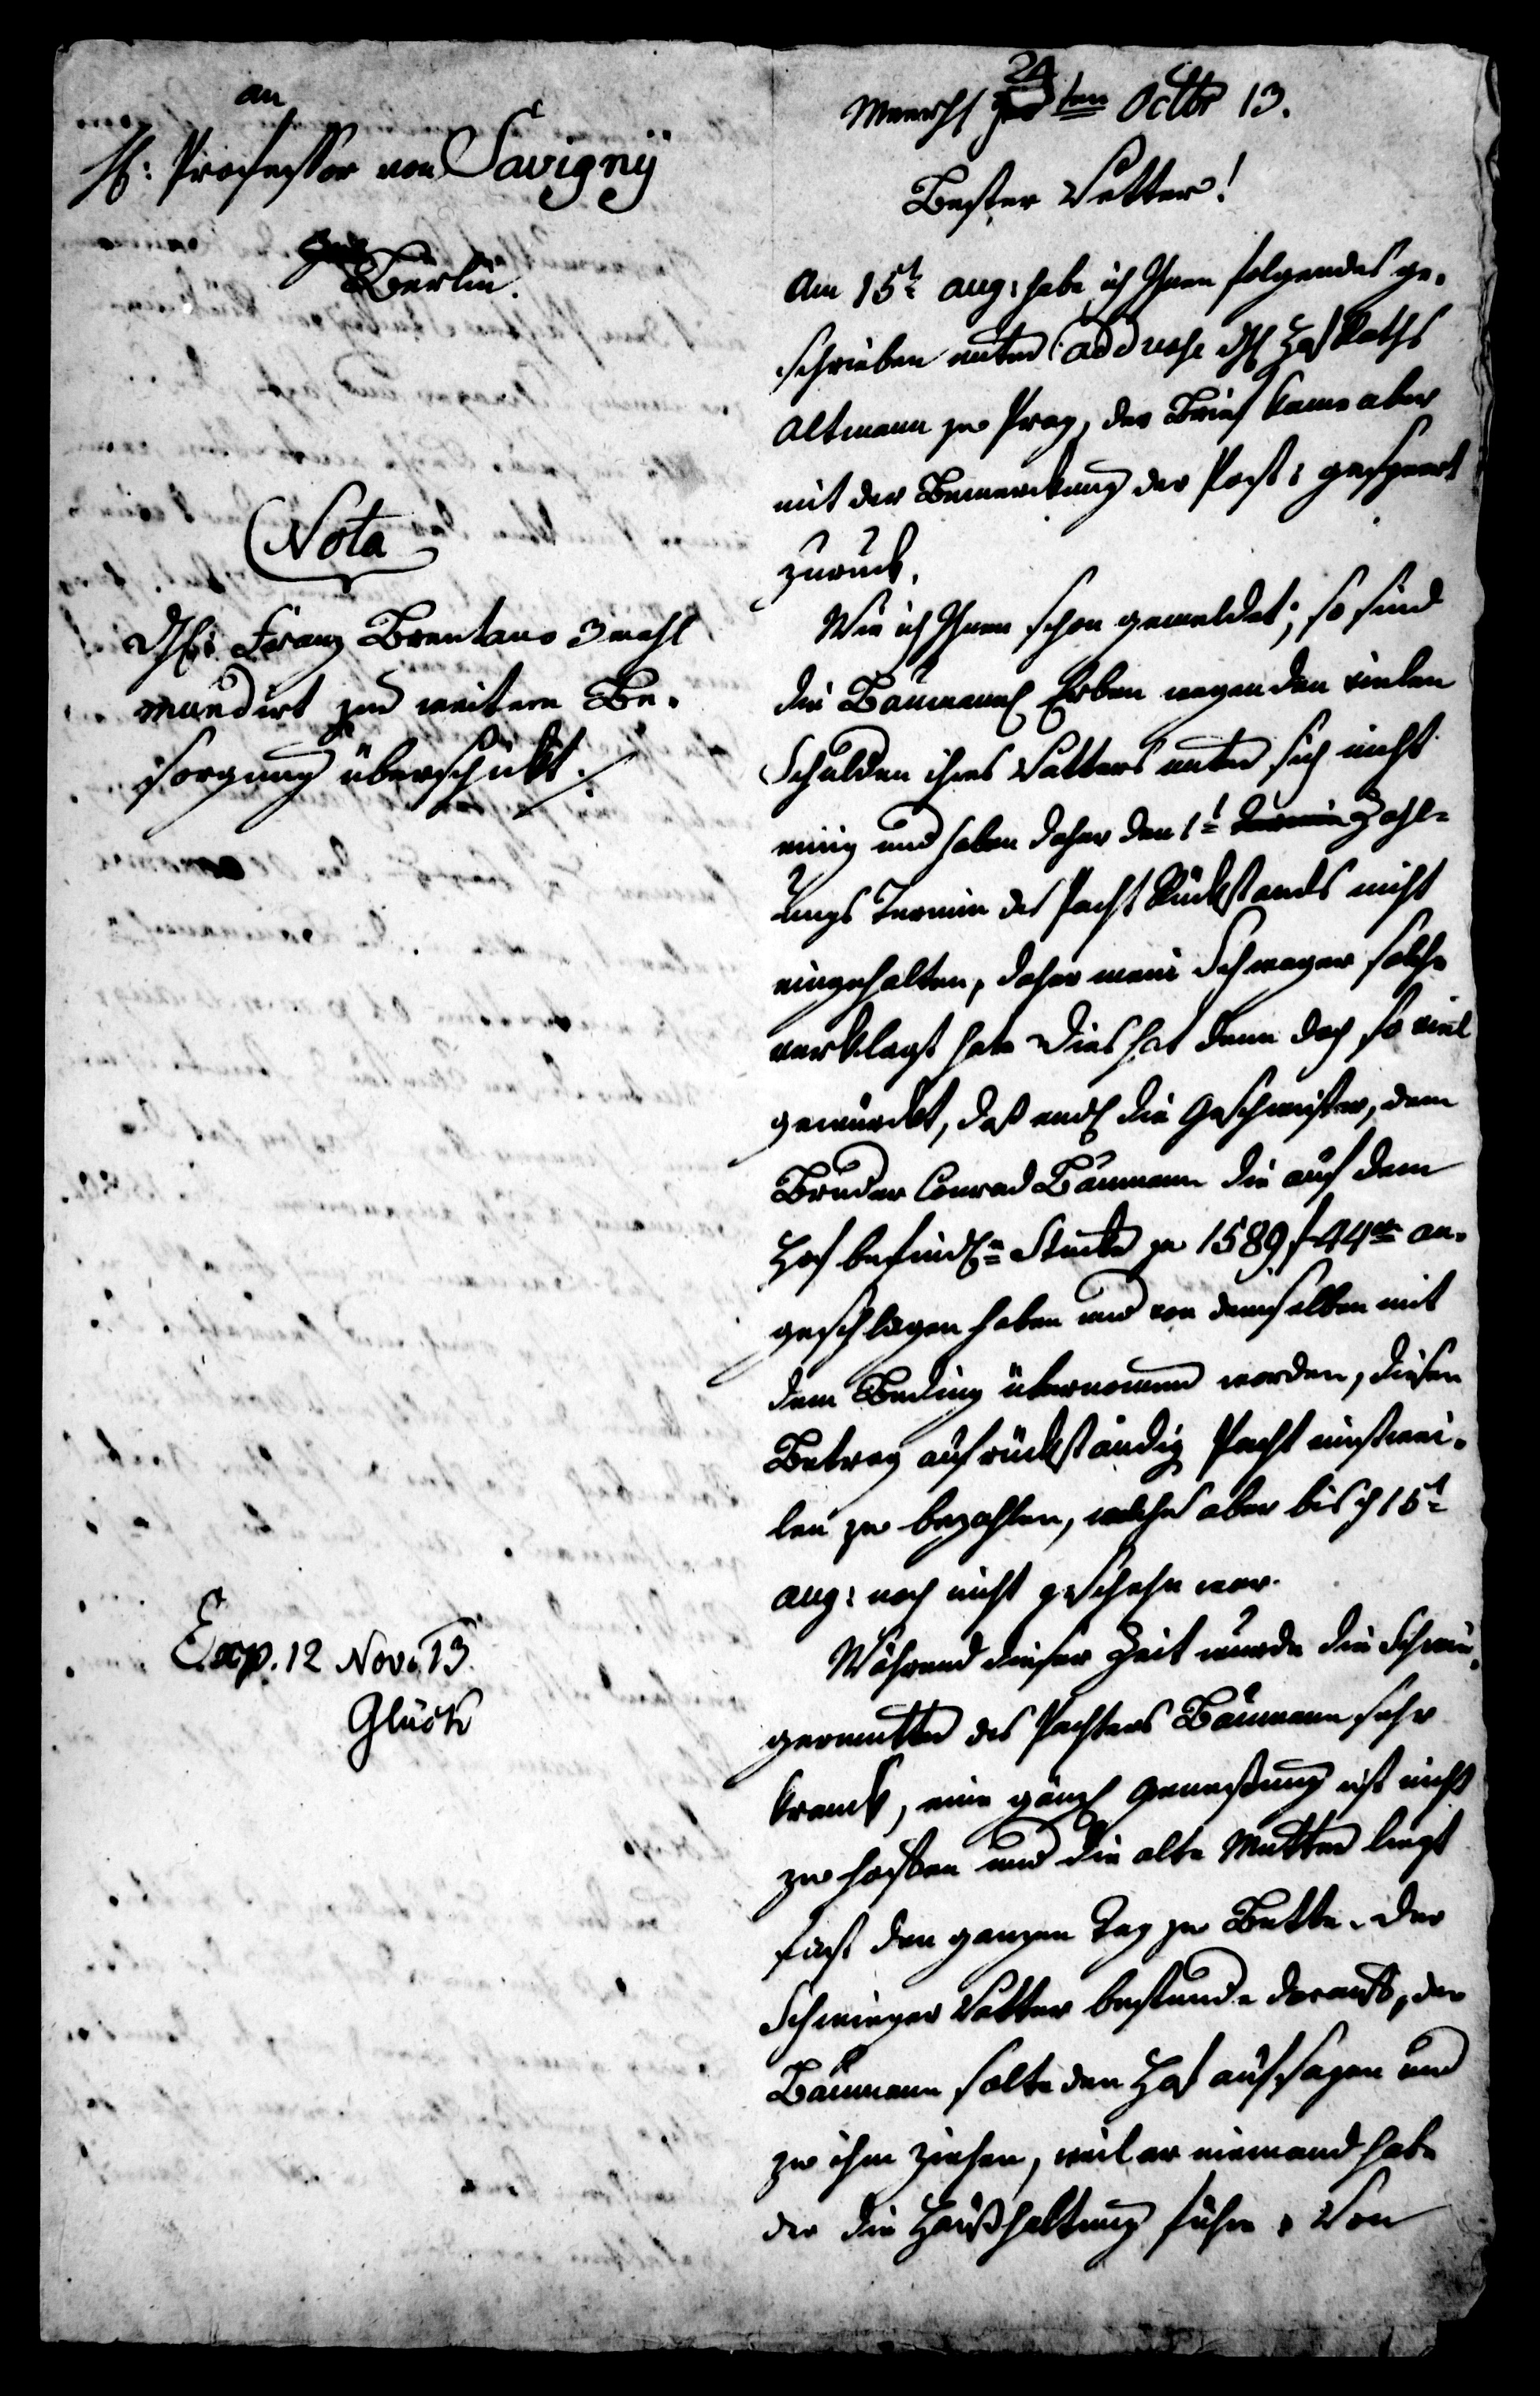 an
H: Professor von Savignÿ
Berlin.
Nota
Franz Brentano 3 mahl
mundirt zur weitern Be-
sorgung überschickt ./.
Exp. 12 Nov. 13.
Glück
24ten Octbr 13.
Bester Vetter!
Am 15t aug: habe ich Ihnen folgendes ge-
schrieben unter addresse Hof Raths
Altmann zu Prag, der Brief kame aber
mit der Bemerckung der Post: gesperrt
zurück.
Wie ich Ihnen schon gemeldet, so sind
die Baumann Erben wegen den vielen
Schulden ihres Vatters unter sich nicht
einig und haben daher den 1t Termin Zahl-
ungs Termin des Pacht Rückstands nicht
eingehalten, daher mein Schwager solche
verklagt hat. Dies hat denn doch so viel
gewürckt, daß endl die Geschwister, dem
Bruder Conrad Baumann die auf dem
Hof befindln Stücke zu 1589 f 44 xr an-
geschlagen haben und von demselben mit
dem Beding übernomen worden, diesen
Betrag auf rückständig Pacht einstwei-
len zu bezahlen, welches aber bis d 15t
aug: noch nicht geschehn war.
Während dieser Zeit wurde die Schwie-
germutter des Pachters Baumann sehr
kranck, eine gänzl Genesung ist nicht
zu hoffen und die alte Mutter liegt
fast den ganzen Tag zu Bette. Der
Schwieger Vatter bestunde darauf, der
Baumann solte den Hof aufsagen und
zu ihm ziehen, weil er niemand habe
der die Haußhaltung führe. Von